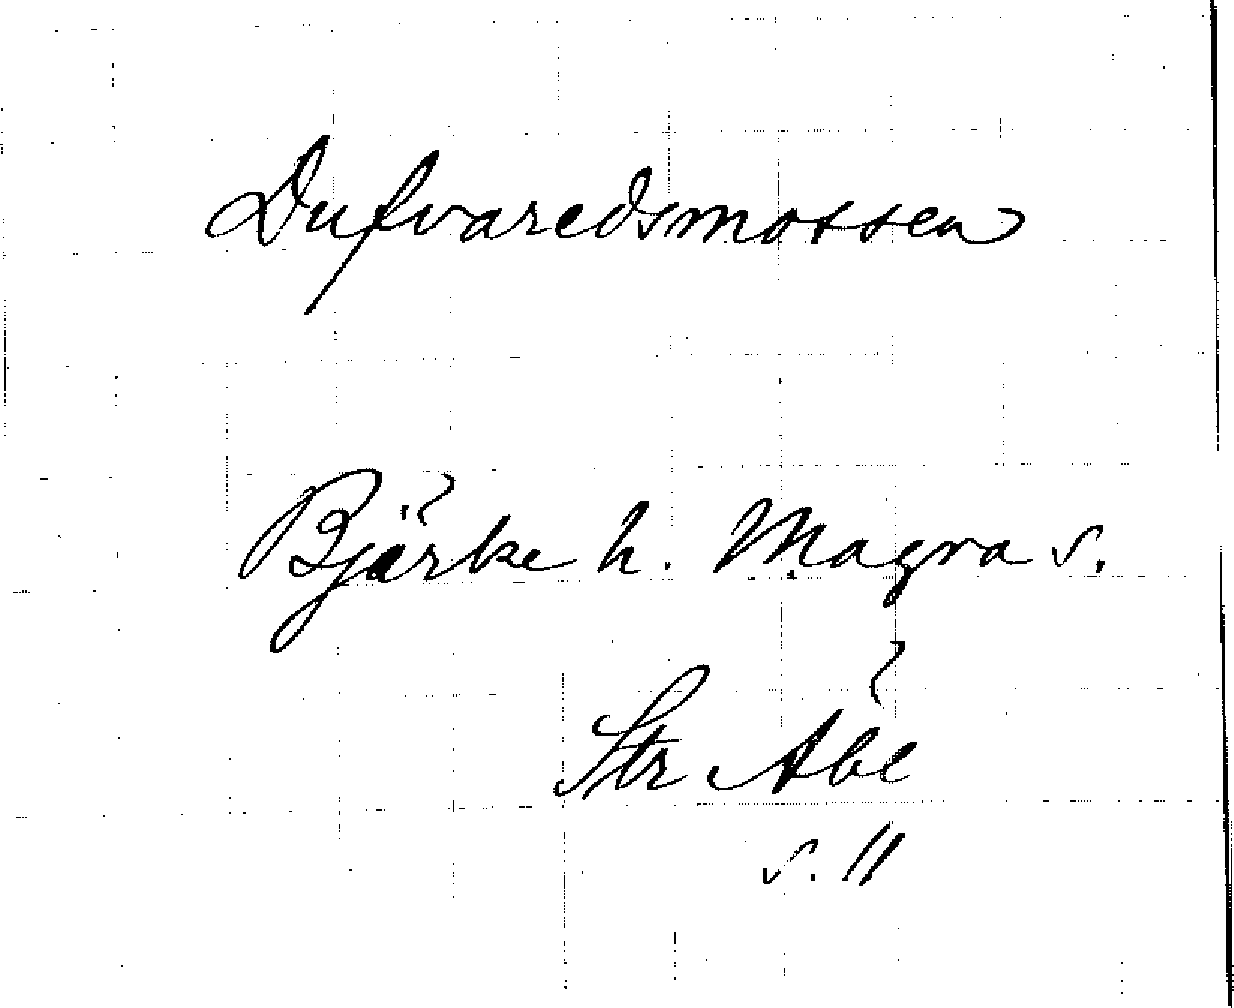 Dufvaredsmossen
Bjärke h. Magra s.
Str Åbe
s. 11